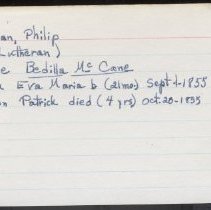 an, Philip
Lutheran)
e Bedilla Mc Cane
Eva Maria b (21mo) Sept 1-1855
n Patrick died (4 yrs) Oct. 20-1855